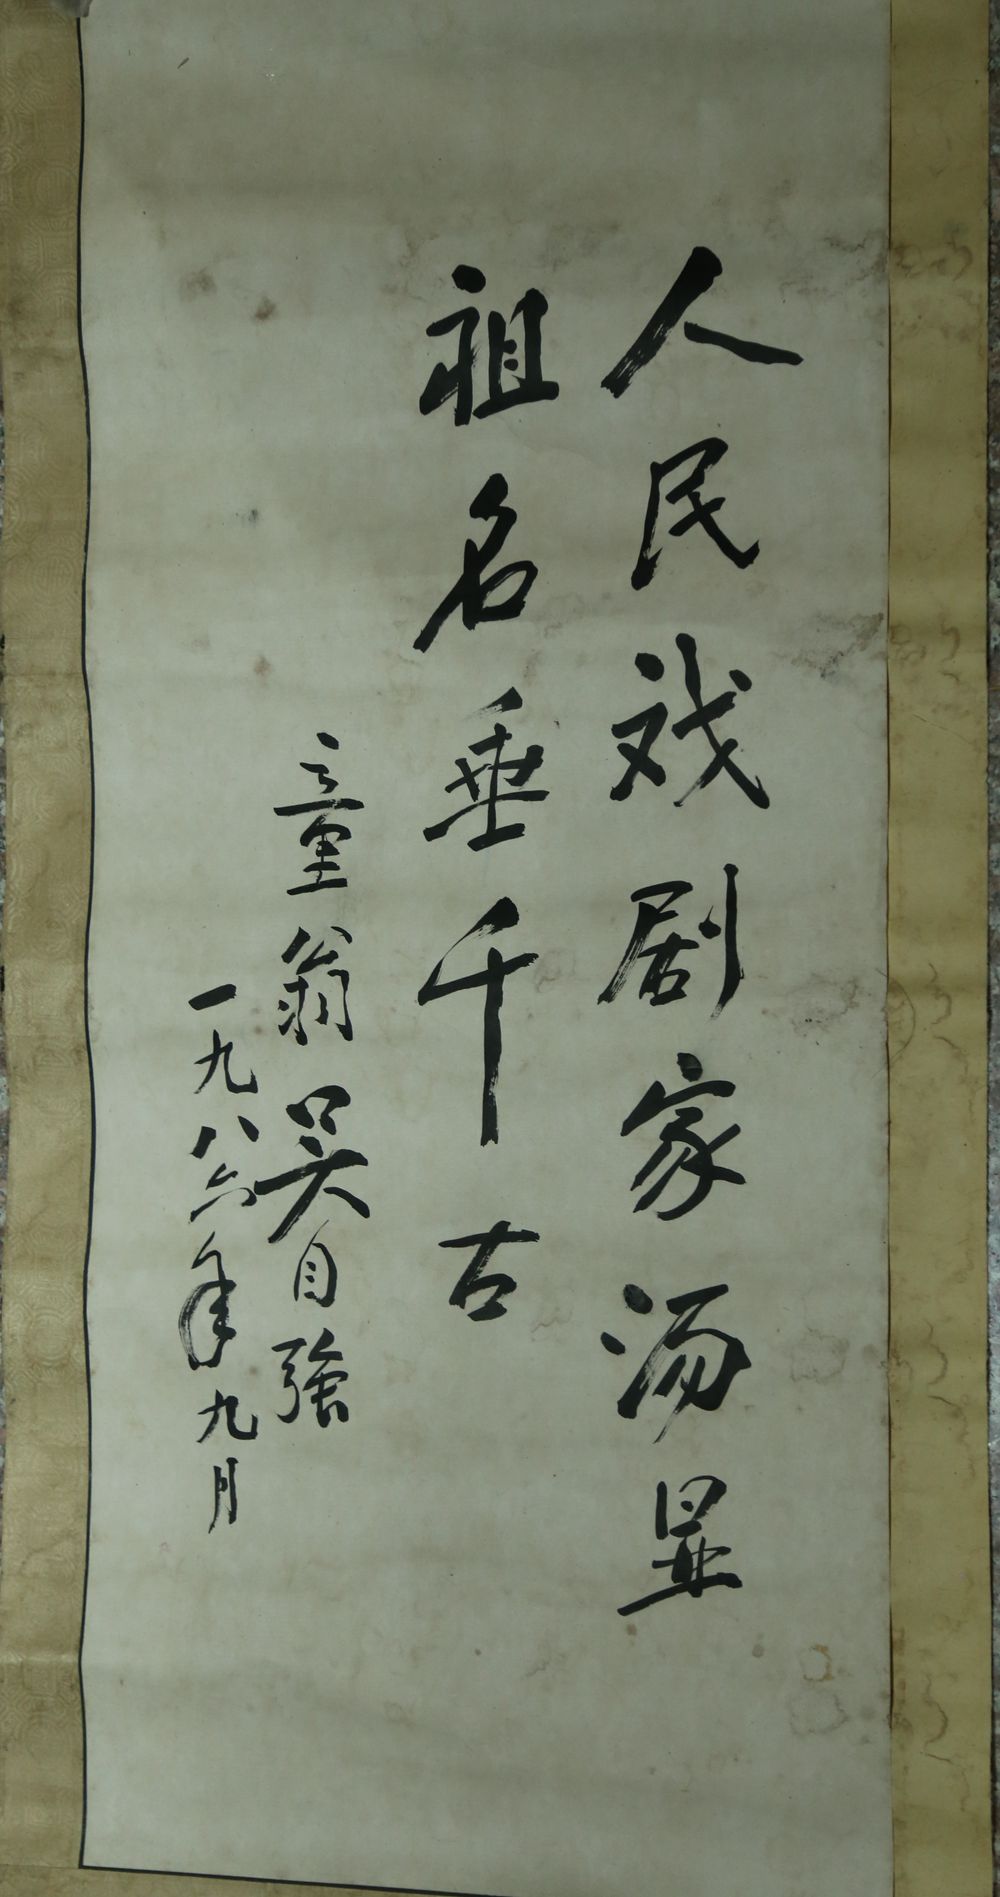 人民戏剧家汤显
祖名垂千古
童翁吴自强
一九八六年九月